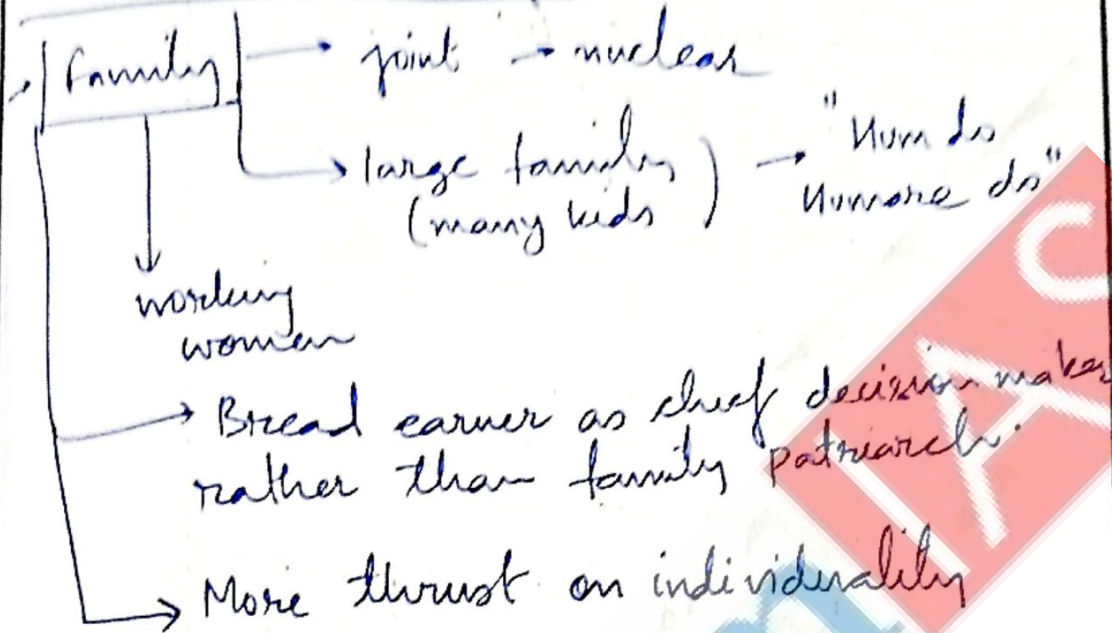 Family → joint → nuclear
→ large family → "Hum do
(many kids) Humare do"
working
women
→ Bread earner as chief decision maker
rather than family patriarch.
→ More thrust on individuality
IAS